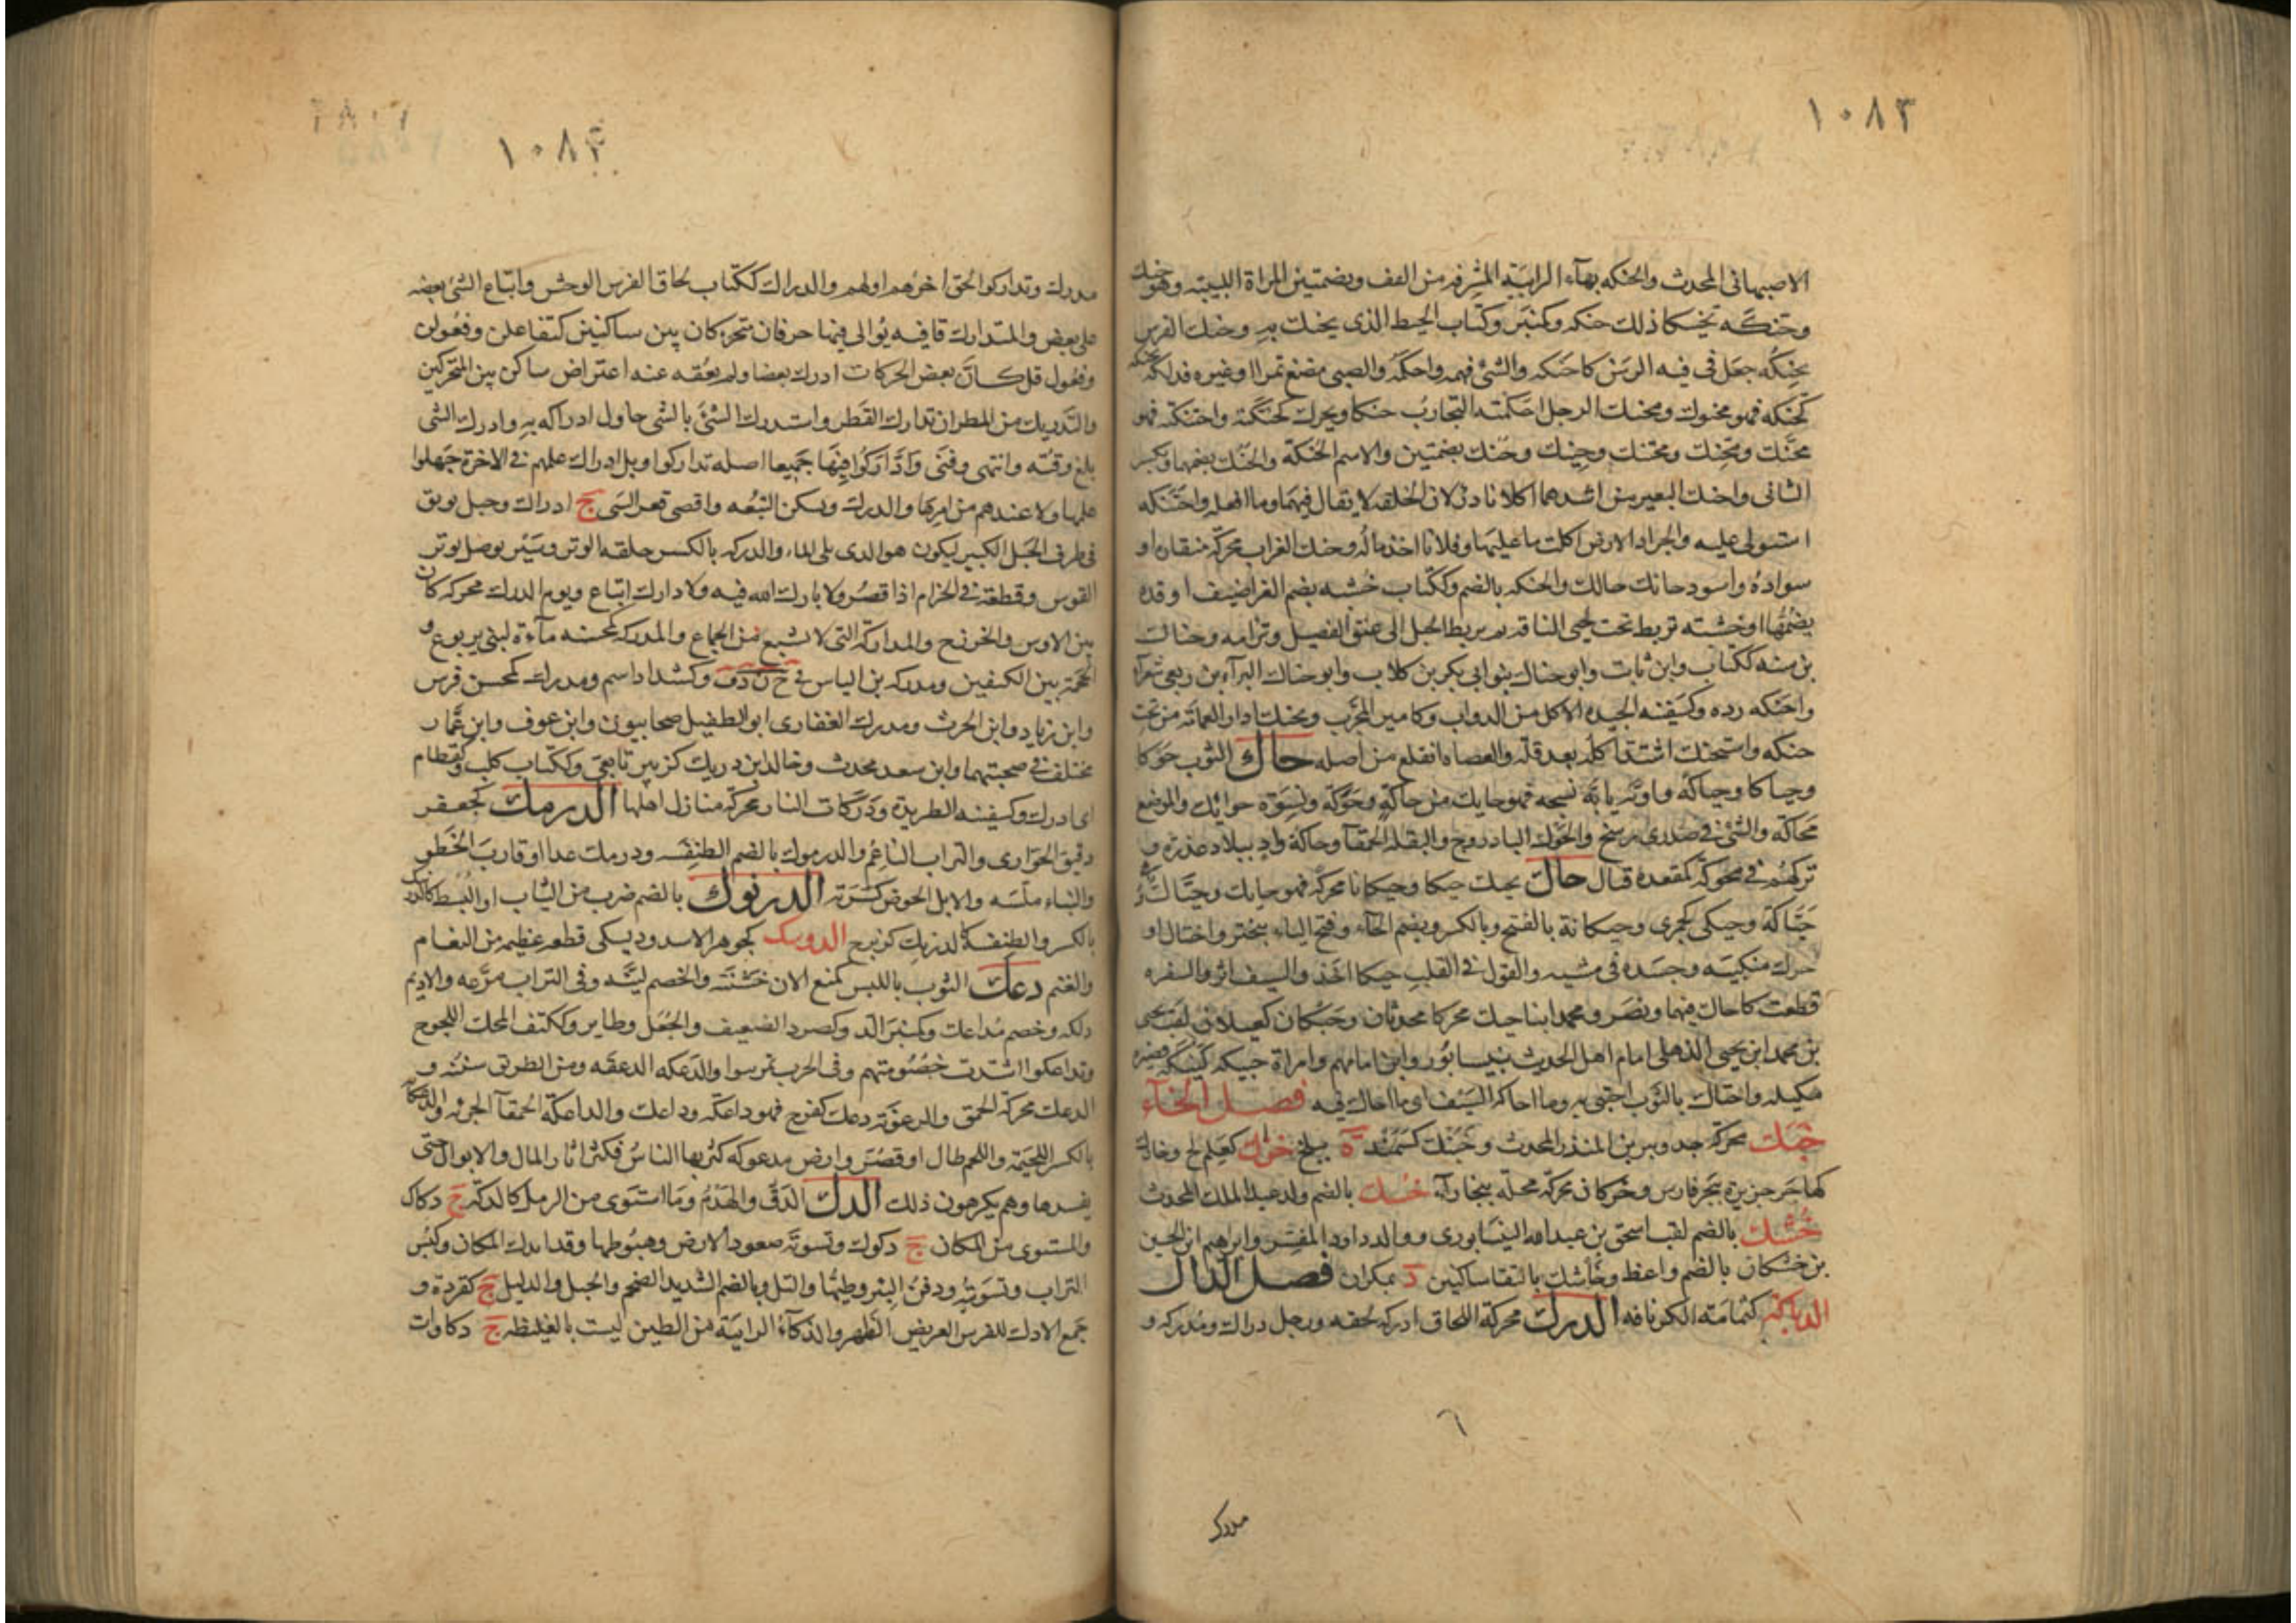 ١٠٨٣
الاصبهانى المحدث والحنكه بهآء الرابية المشرفه من القف وبضمتين المراة اللبيبه وهو حنك
وحنكه تحنيكا ذلك حنكه وكمنبر وكتاب الخيط الذى يحنك به وحنك الفرس
يحنكه جعل فى فيه الرسن كاحتنكه والشئ فهمه واحكمه والصبى مضغ تمرا او غيره فدلكه بحنكه
كحنكه فهو محنوك ومحنك الرجل احكمته التجارب حنكا ويحرك كحنكته واحتنكته فهو
محنك ومحنك ومحتنك وحنيك وحنك بضمتين والاسم الحنكة والحنك بضمهما وبكسر
الثانى واحنك البعيرين اشدهما اكلا نادر لان الخلقه لا يقال فيها وما افعله واحتنكه
استولى عليه والجراد الارض اكلت ما عليها وفلانا اخذ ماله وحنك الغراب محركة منقاره او
سواده واسود حانك حالك والحنكه بالضم وككتاب خشبه تضم الغراضيف او قدة
يضمها او خشبه تربط تحت لحيى الناقه ثم يربط الحبل الى عنق الفصيل وترامه وحناك
بن سنه ككتاب وابن ثابت وابو حناك بنو ابى بكر بن كلاب وابو حناك البرآء بن ربعى شعرآء
واحنكه رده وكسفينه الجيده الاكل من الدواب وكامير المجرب وتحنك ادار العمامة من تحت
حنكه واستحنك اشتد اكله بعد قله والعضاه انقلع من اصله حاك الثوب حوكا
وحياكا وحياكة واويه يائيه نسجه فهو حايك من حاكة وحوكه ونسوة حوائك والموضع
محاكه والشئ فى صدرى رسخ والحوك الباذروج والبقله الحمقآ وحاكة واد ببلاد عذرة و
تركتهم فى محوكة كمقعدة قتال حاك يحيك حيكا وحيكانا محركه فهو حايك وحياك
حياكة وحيكى كجمزى وحيكانة بالفتح وبالكسر وبضم الحآء وفتح اليآء تبختر واختال او
حرك منكبيه وجسده فى مشيه والقول فى القلب حيكا اخذ والسيف اثر والشفره
قطعت كاحاك فيهما ونصر ومحمد ابنا حيك محركا محدثان وحيكان كغيلان لقب يحيى
بن محمد ابن يحيى الذهلى امام اهل الحديث بنيسابور وابن امامهم وامراة حييكه كهينكه قصيره
مكيله واحتاك بالثوب احتبى به وما احاكه السيف اى ما احاك فيه فصل الخآء
خبك محركة جد وبر بن المنذر المحدث وخبنك كسمند ة ببلخ خرك كعلم لج وخارك
كهاجر جزيرة ببحر فارس وخركان محركة محلة ببخارآء خسك بالضم والد عبد الملك المحدث
خشك بالضم لقب اسحق بن عبد الله النيسابورى ووالد داود المفسر وابراهيم ابن الحسين
بن خشكان بالضم واعظ وخاشك بالتقا ساكنين د بمكران فصل الدال
الدباكه كثمامة الكرنافه الدرك محركة اللحاق ادركه لحقه ورجل دراك ومدركه و
مدرك
١٠٨٤
مدرك وتداركوا لحق اخرهم اولهم والدراك ككتاب لحاق الفرس الوحش واتباع الشئ بعضه
على بعض والمتدارك قافيه توالى فيها حرفان متحركان بين ساكنين كمتفاعلن وفعولن
وفعول فل كان بعض الحركات ادرك بعضا ولم يعقه عنه اعتراض ساكن بين المتحركين
والتدريك من المطر ان تدارك القطر واستدرك الشئ بالشئ حاول ادراكه به وادرك الشى
بلغ وقته وانتهى وفنى وادّاركوا فيها جميعا اصله تداركوا وبل ادارك علمهم فى الاخرة جهلوا
علمها ولا عندهم من امرها والدرك ويسكن التبعه واقصى قعر الشى ج ادراك وحبل يوثق
فى طرف الحبل الكبير ليكون هو الذى يلى المآء والدركه بالكسر حلقه الوتر وسير يوصل بوتر
القوس وقطعة فى الحزام اذا قصر ولا بارك الله فيه ولا دارك اتباع ويوم الدرك محركه كان
بين الاوس والخزرج والمداركه التى لا تشبع من الجماع والمدركه كمحسنه مآءة لبنى يربوع و
الحجمة بين الكتفين ومدركه بن الياس فى خ ن د ف وكشداد اسم ومدرك كمحسن فرس
وابن زياد وابن الحرث ومدرك الغفارى ابو الطفيل صحابيون وابن عوف وابن عمار
مختلف فى صحبتهما وابن سعد محدث وخالد بن دريك كزبير تابعى وككتاب كلب وكقطام
اى ادرك وكسفينه الطريدة ودركات النار محركة منازل اهلها الدرمك كجعفر
دقيق الحوارى والتراب الناعم والدرموك بالضم الطنفسه ودرمك عدا او قارب الخطو
والبناء ملسه والابل الحوض كسرته الدرنوك بالضم ضرب من الثياب او البسط كالدرنيك
بالكسر والطنفسه كالدرنك كزبرج الدوسك كجوهر الاسد وديسكى قطعه عظيمه من النعام
والغنم دعك الثوب باللبس كمنع الان خشنته والخصم لينه وفى التراب مرغه والاديم
دلكه وخصم مداعك وكمنبر الد وكصرد الضعيف والجعل وطاير وككتف المحك اللجوج
وتداعكوا اشتدت خصومتهم وفى الحرب تمرسوا والدعكه الدعقه ومن الطريق سننه و
الدعك محركة الحمق والرعونة دعك كفرح فهو داعكه وداعك والداعكة الحمقآء الجريه والدعكايه
بالكسر اللحيمه واللحم طال او قصر وارض مدعوكه كثر بها الناس فكثر اثار المال والابوال حتى
يفسدها وهم يكرهون ذلك الدك الدق والهدم وما استوى من الرمل كالدكه ج دكاك
والمستوى من المكان ج دكوك وتسوية صعود الارض وهبوطها وقد اندك المكان وكبس
التراب وتسويته ودفن البئر وطمها والتل وبالضم الشديد الضخم والجبل والذليل ج كقردة و
جمع الادك للفرس العريض الظهر والدكآء الرابية من الطين ليست بالغليظه ج دكاوات